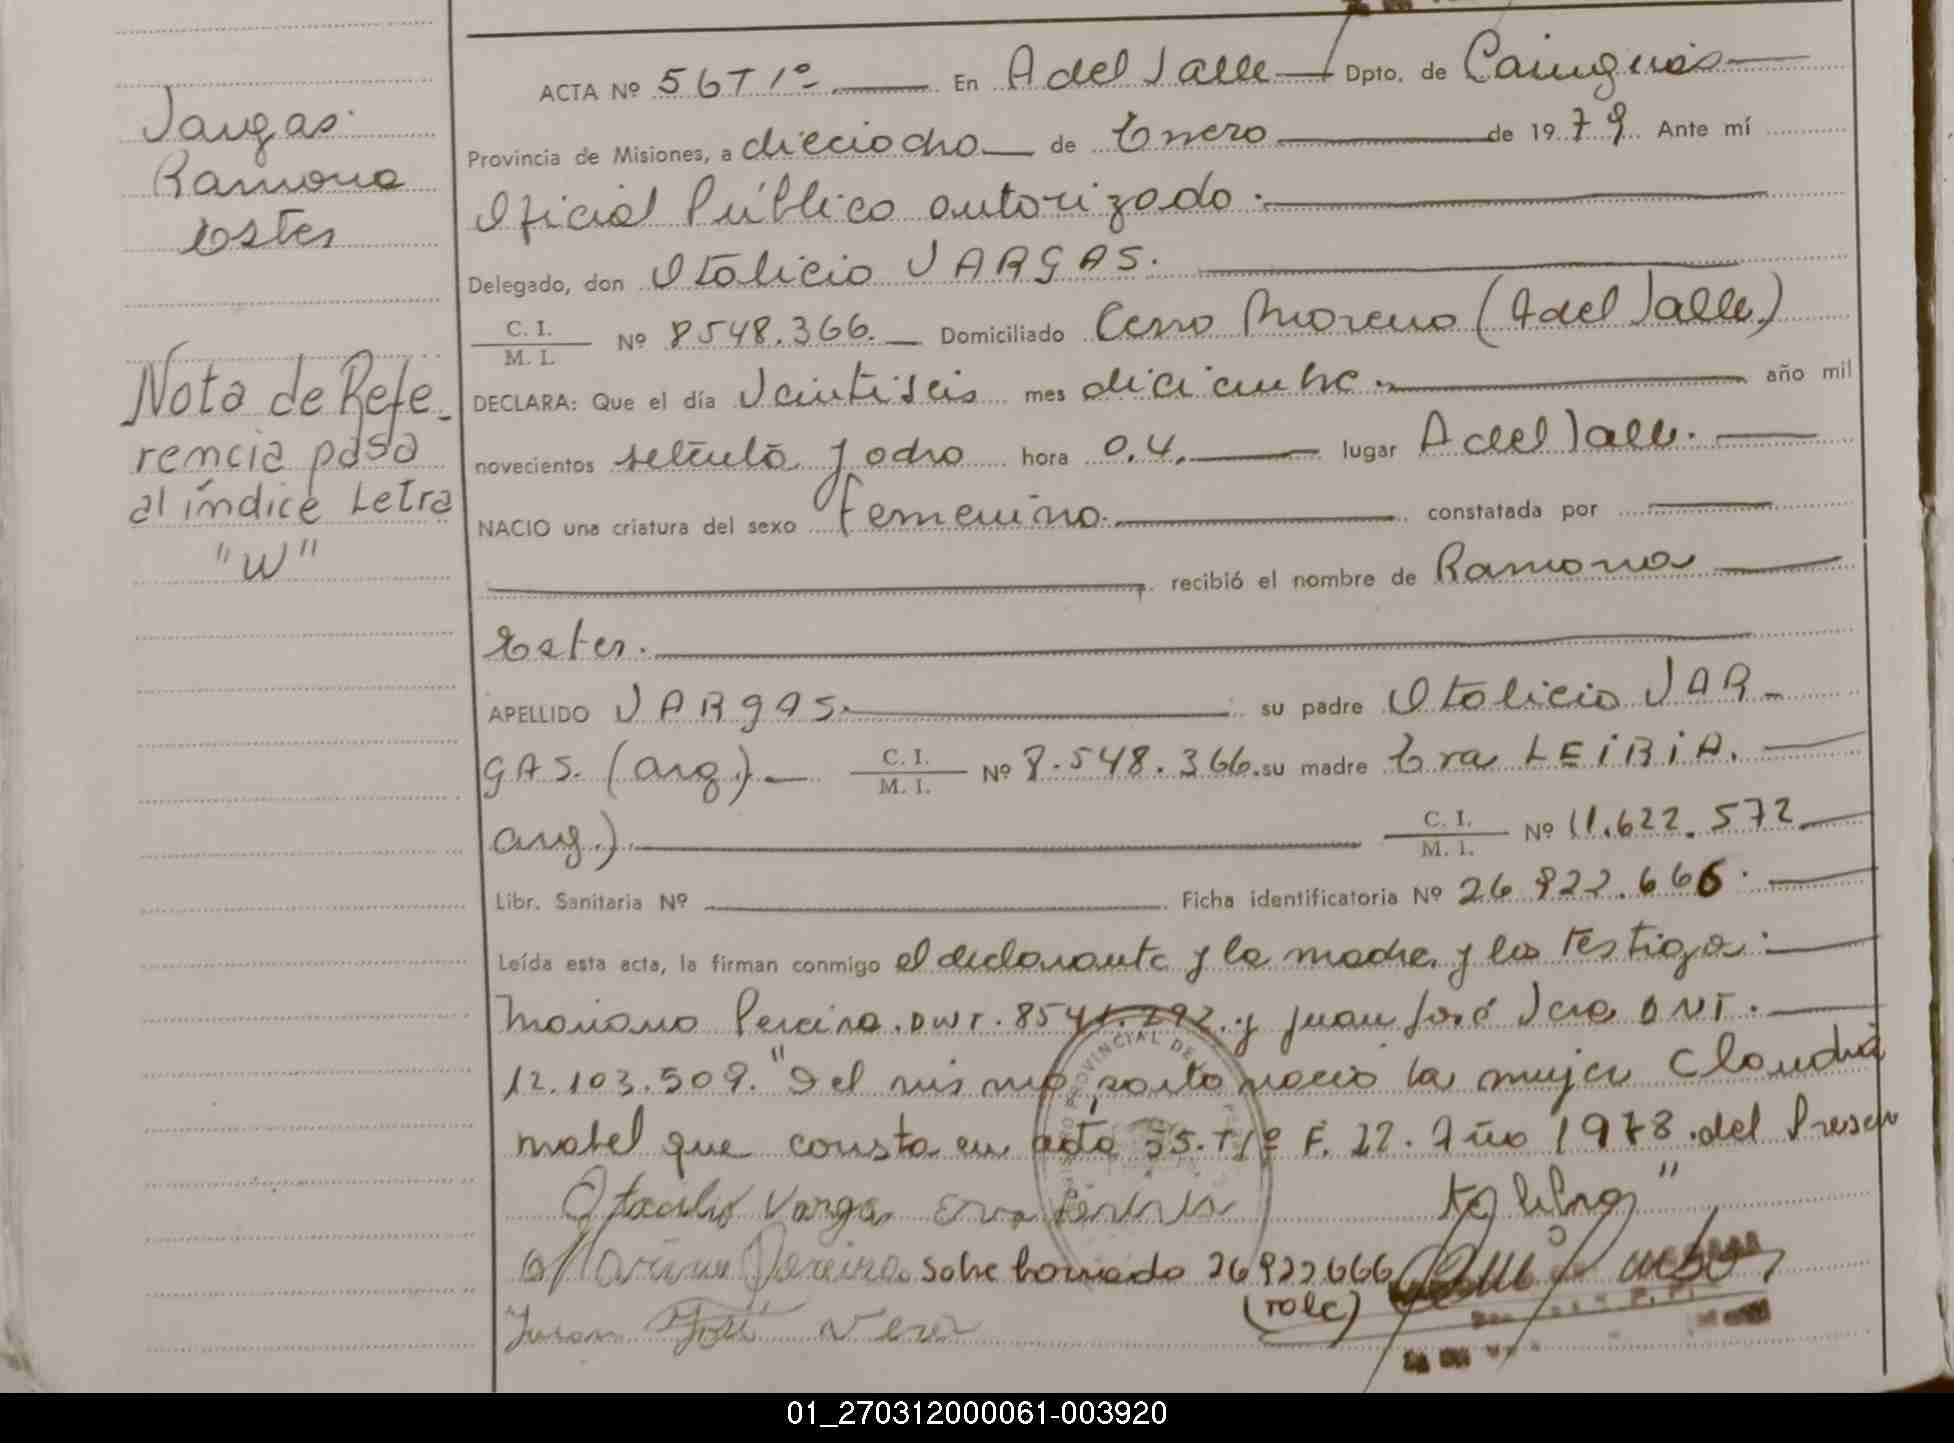 Vargas
Ramona
Ester
Nota de Refe-
rencia pasa
al índice Letra
"W"
ACTA Nº 56 T1º En A del Valle Dpto. de Cainguás
Provincia de Misiones, a dieciocho de Enero de 1979 Ante mí
Oficial Público autorizado.
Delegado, don Otalicio VARGAS.
C. I.
M. I.
Nº 8548.366. Domiciliado Cerro Moreno (A del Valle)
DECLARA: Que el día Veintiseis mes diciembre. año mil
novecientos setenta y ocho hora 0.4. lugar A del Valle.
NACIO una criatura del sexo femenino. constatada por
recibió el nombre de Ramona
Ester.
APELLIDO VARGAS. su padre Otalicio VAR-
GAS. (arg.) C. I. M. I. Nº 8.548.366. su madre Eva LEIRIA.
arg.) C. I. M. I. Nº 11.622.572
Libr. Sanitaria Nº Ficha identificatoria Nº 26.922.666.
Leída esta acta, la firman conmigo el declarante y la madre y los testigos:
Mariano Pereira. DNI. 8541.292. y Juan José Vera DNI.
12.103.509. "Del mismo parto nació la mujer Claudia
mabel que consta en acta 55. T1º F. 22. Año 1978 del Presen
te libro"
Otacilio Vargas Eva Leiria
PROVINCIAL DE
Mariano Pereira sobre borrado 26922666
(vale)
Juan José Vera
01_270312000061-003920